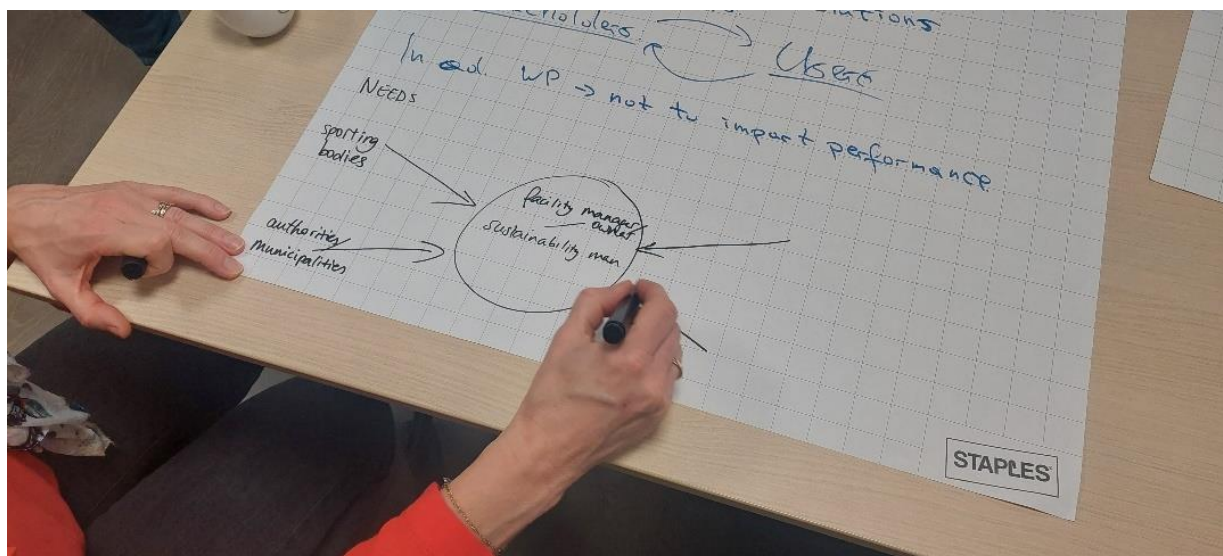 Users
In ad. WP → not to impact performance
NEEDS
sporting
bodies
authorities/
municipalities
facility manager/
owner
sustainability man
STAPLES